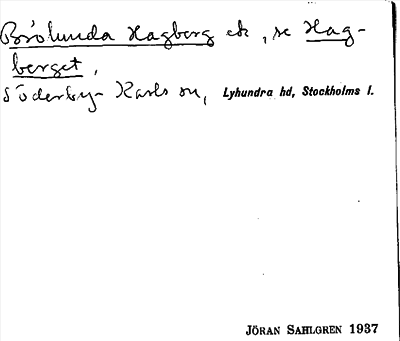 Brölunda Hagberg ek, se Hag-
berget,
Söderby-Karls sn, Lyhundra hd, Stockholms l.
JÖRAN SAHLGREN 1937